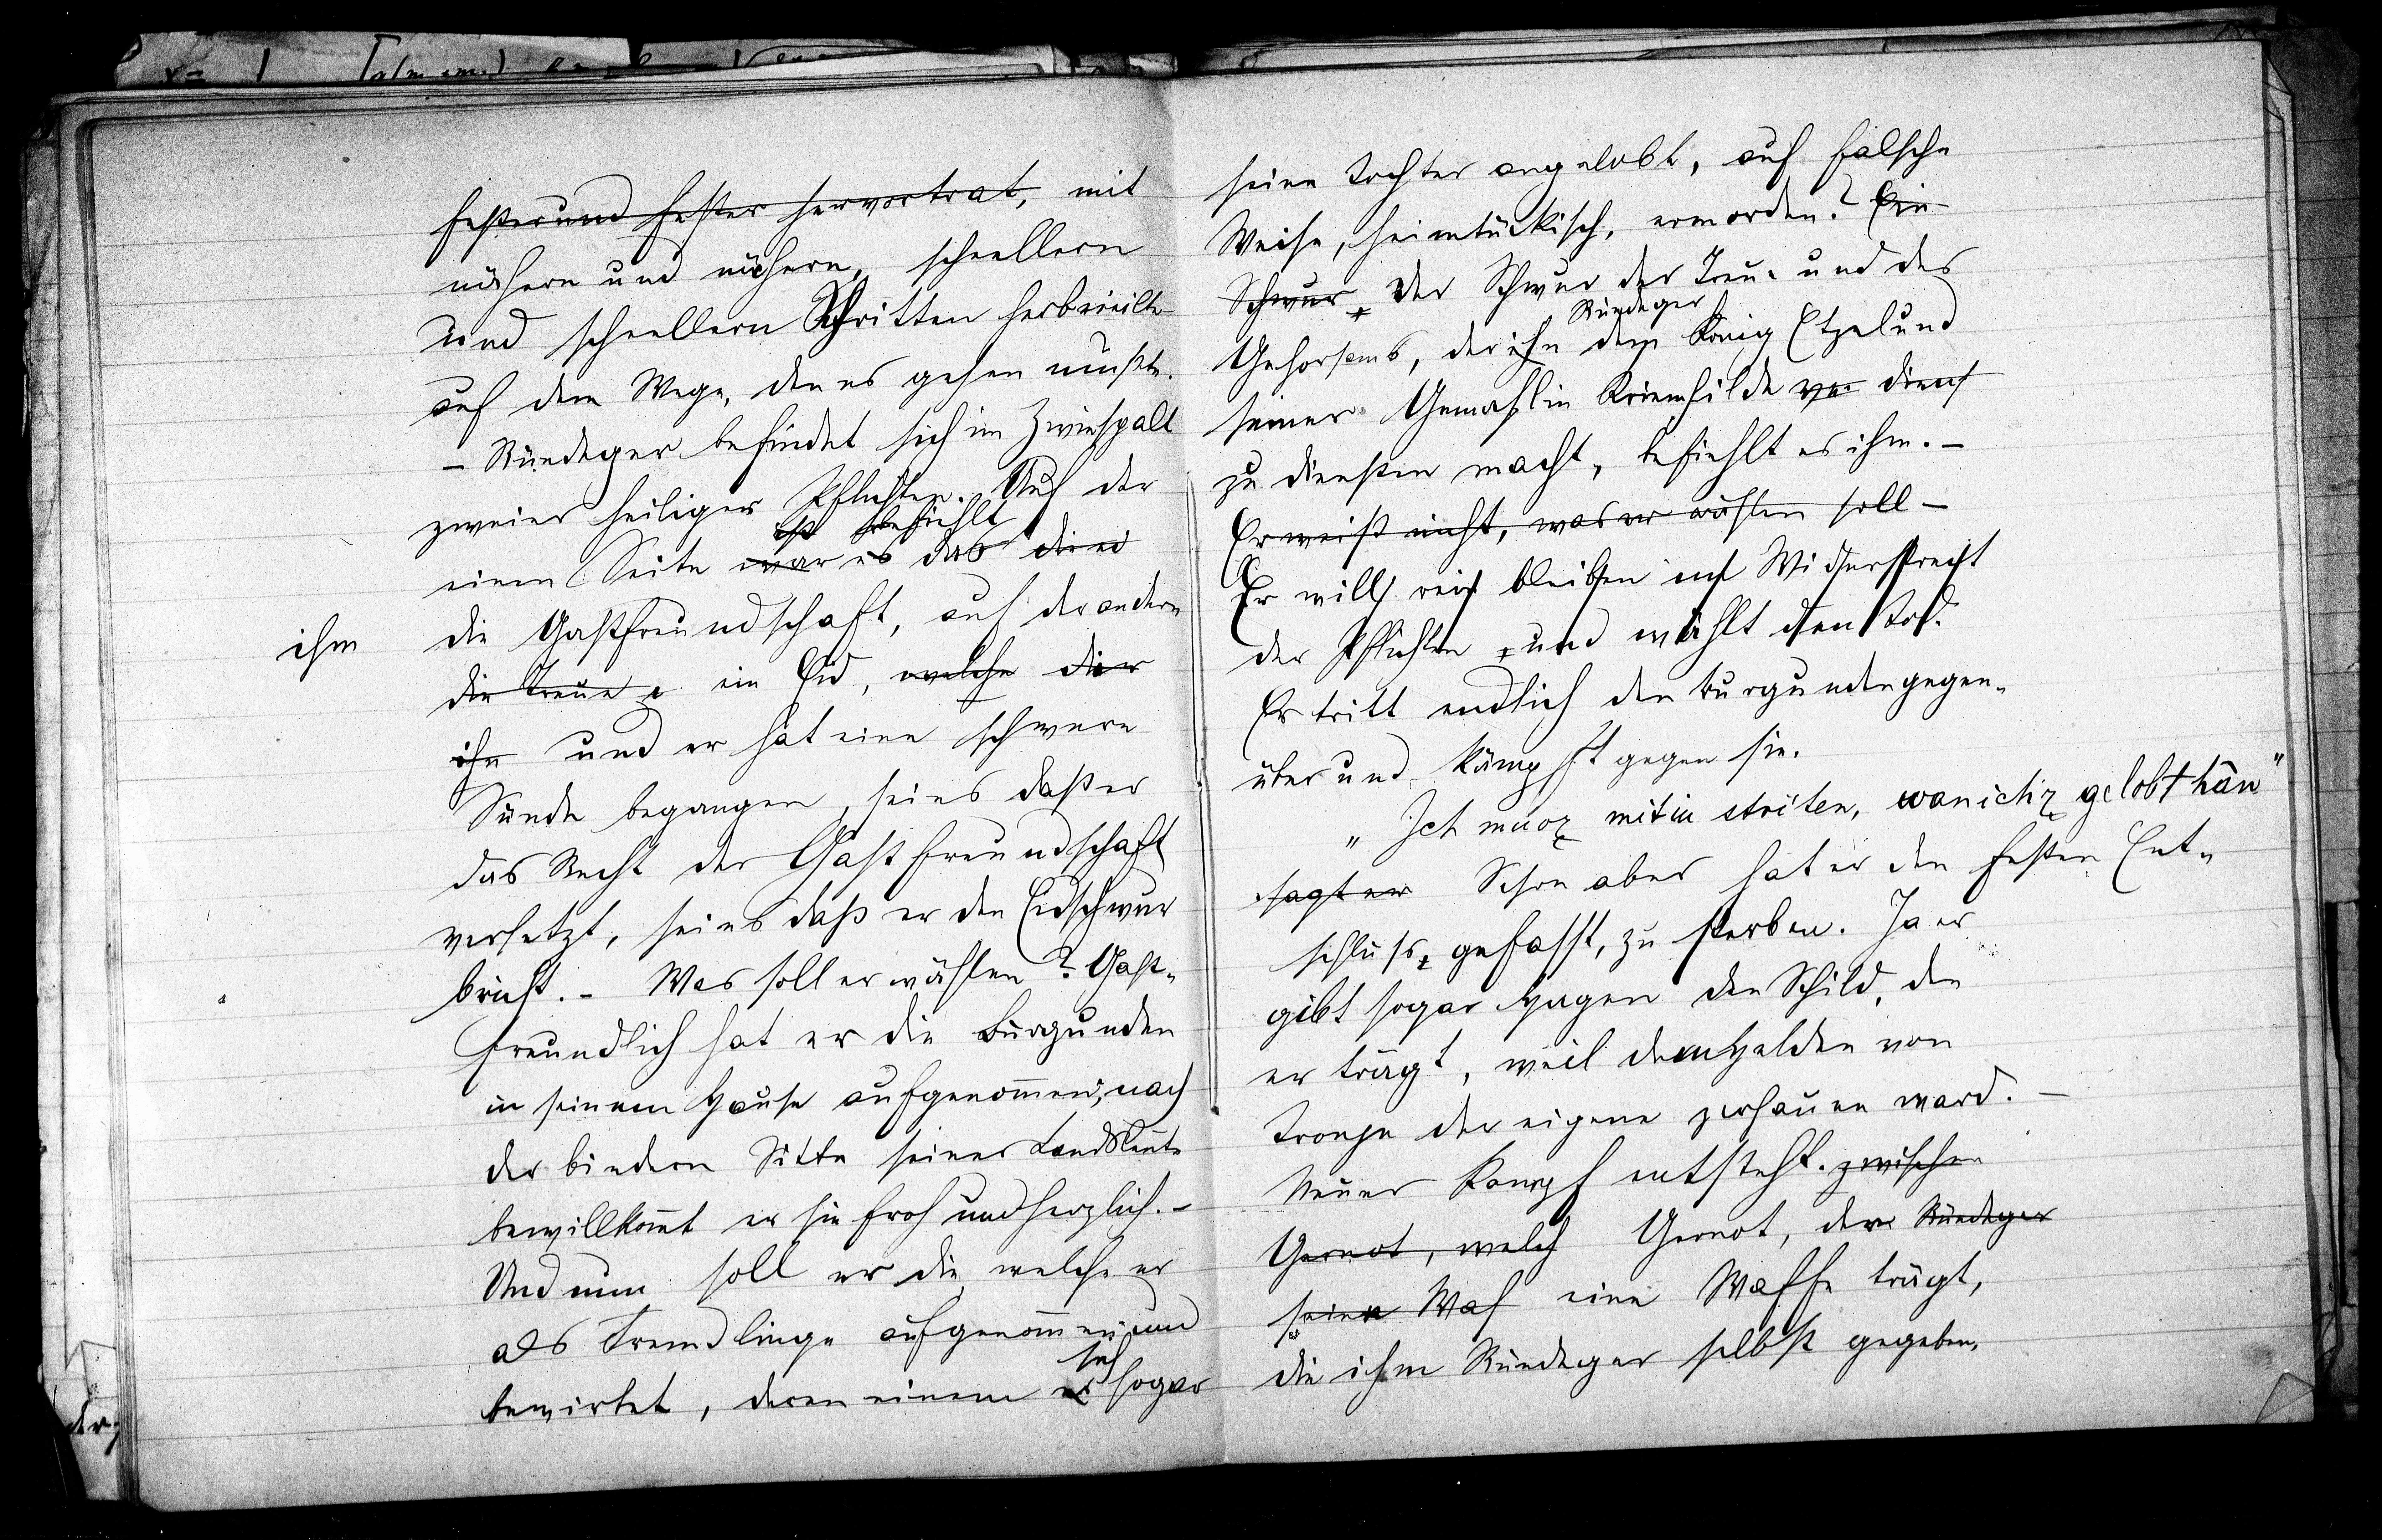 fester und fester hervortrat, mit
nähern und nähern, schnellern
und schnellern Schritten herbeieilte
auf dem Wege, den es gehen mußte.
– Rüedeger befindet sich im Zwiespalt
zweier heiliger Pflichten. Auf der
ist befiehlt
einen Seite war es das die
ihm die Gastfreundschaft, auf der andern
die Treue, ein Eid, welche die
ihn und er hat eine schwere
Sünde begangen, sei es daß er
das Recht der Gastfreundschaft
verletzt, sei es daß er den Eidschwur
bricht. – Was soll er wählen? Gast-
freundlich hat er die Burgunden
in seinem Hause aufgenommen, nach
der biedern Sitte seiner Landsleute
bewillkomt er sie froh und herzlich. –
Und nun soll er die, welche er
als Fremdlinge aufgenommen und
bewirtet, deren einem er sogar
seine Tochter angelobt, auf falsche
Weise, heimtückisch, ermorden? Ein
Schwur, Der Schwur der Treue und des
Rüedeger
Gehorsams, der ihn dem König Etzel und
seiner Gemahlin Kriemhilde dienst
zu diensten macht, befiehlt es ihm. –
Er weiß nicht, was er wählen soll –
Er will rein bleiben im Widerstreit
der Pflichten und wählt den Tod.
Er tritt endlich den Burgunden gegen-
über und kämpft gegen sie.
„Ich muoz mit iu striten, wan ichz gelobt hân"
sagt er Schon aber hat er den festen Ent-
schluss, gefasst, zu sterben. Ja er
gibt sogar Hagen den Schild, den
er trägt, weil dem Helden von
Tronje der eigene zerhauen ward. –
Neuer Kampf entsteht. zwischen
Gernot, welch Gernot, der Rüedeger
seine Waf eine Waffe trägt,
die ihm Rüedeger selbst gegeben,